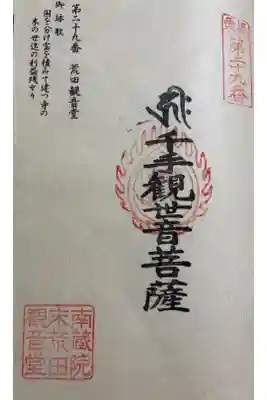 第二十九番
千手観世音菩薩
第二十九番 荒田観音堂
御詠歌
国を分け宝を積みて建つ寺の
末の世迄の利益残せり
南蔵院
末荒田
観音堂